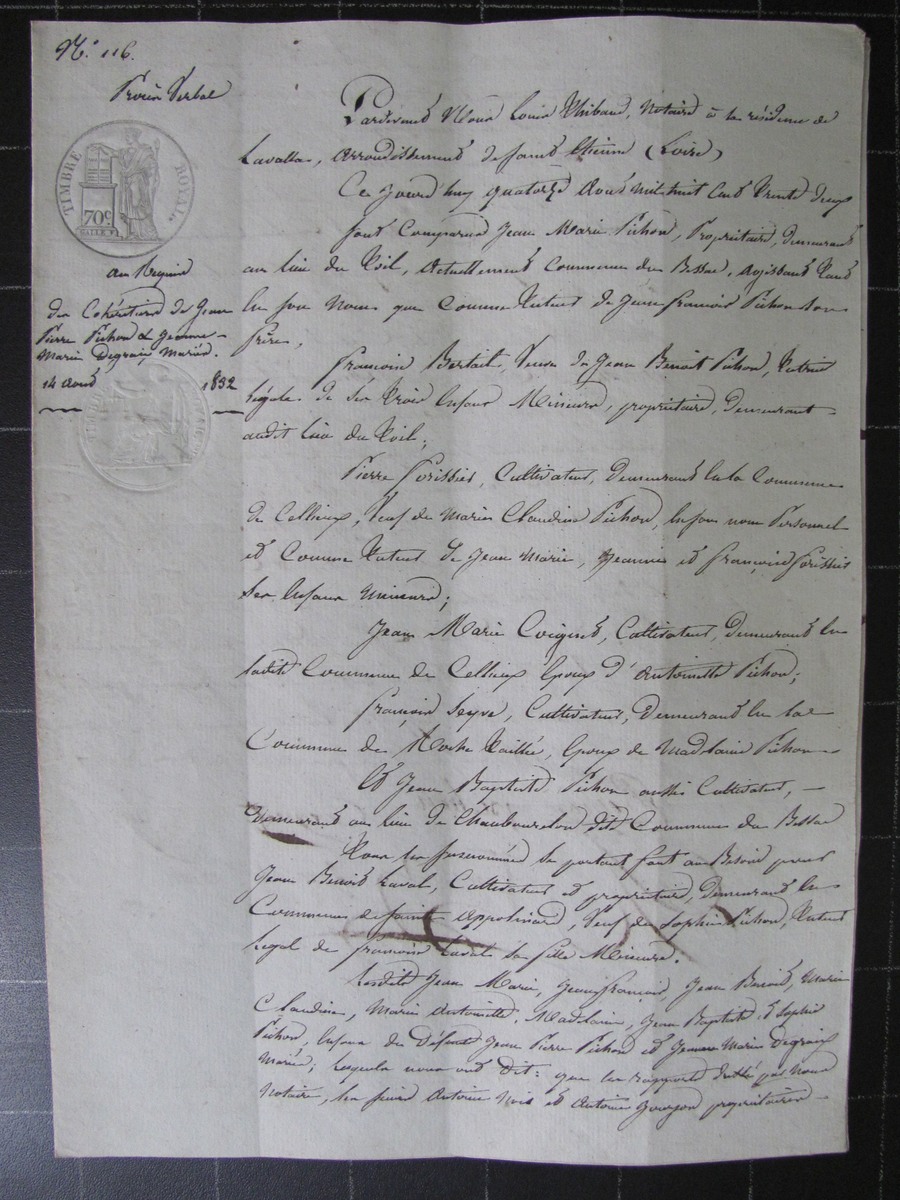 N.° 116.
Procès Verbal
TIMBRE ROYAL
70c
au Requis
des Cohéritiers de Jean
Pierre Pichon & Jeanne-
Marie Degraix, mariés.
14 Août 1832
Pardevant Nous Louis Thibaud, Notaire à la résidence de
Lavalla, arrondissement de Saint Etienne (Loire)
Ce jourd'huy quatorze Août mil huit cent trente deux
sont Comparus Jean Marie Pichon, Propriétaire, demeurant
au lieu du , actuellement Commune du Bessac, agissant tant
en son nom, que comme tuteur de Jean François Pichon son
frère,
François Bertail, Veuve de Jean Benoit Pichon, tutrice
légale de ses trois enfans Mineurs, propriétaire, demeurant
audit lieu du ;
Pierre Forissier, Cultivateur, demeurant en la Commune
de Cellieux, Veuf de Marie Claudine Pichon, en son nom Personnel
et Comme tuteur de Jean Marie, Jeannie et François Forissier
ses enfans mineurs;
Jean Marie Coignet, Cultivateur, demeurant en
ladite Commune de Cellieux Epoux d'Antoinette Pichon;
François Seyve, Cultivateur, demeurant en la
Commune de Roche Taillée, Epoux de Madelaine Pichon
Et Jean Baptiste Pichon aussi Cultivateur, -
demeurant au lieu de Chaubouselon dite Commune du Bessac
Tous les susnommés se portant fort au Besoin pour
Jean Benoit Laval, Cultivateur et propriétaire, demeurant en
Commune de Sainte Appolinard, Veuf de Sophie Pichon, tuteur
légal de Françoise Laval sa fille Mineure.
Lesdits Jean Marie, Jean François, Jean Benoit, Marie
Claudine, Marie Antoinette, Madelaine, Jean Baptiste & Sophie
Pichon, enfans de Défunts Jean Pierre Pichon et Jeanne Marie Degraix
Mariés; lesquels nous ont dit: que les rapports par Nous
Notaire, les sieurs Antoine et Antoine Gourgon propriétaires -